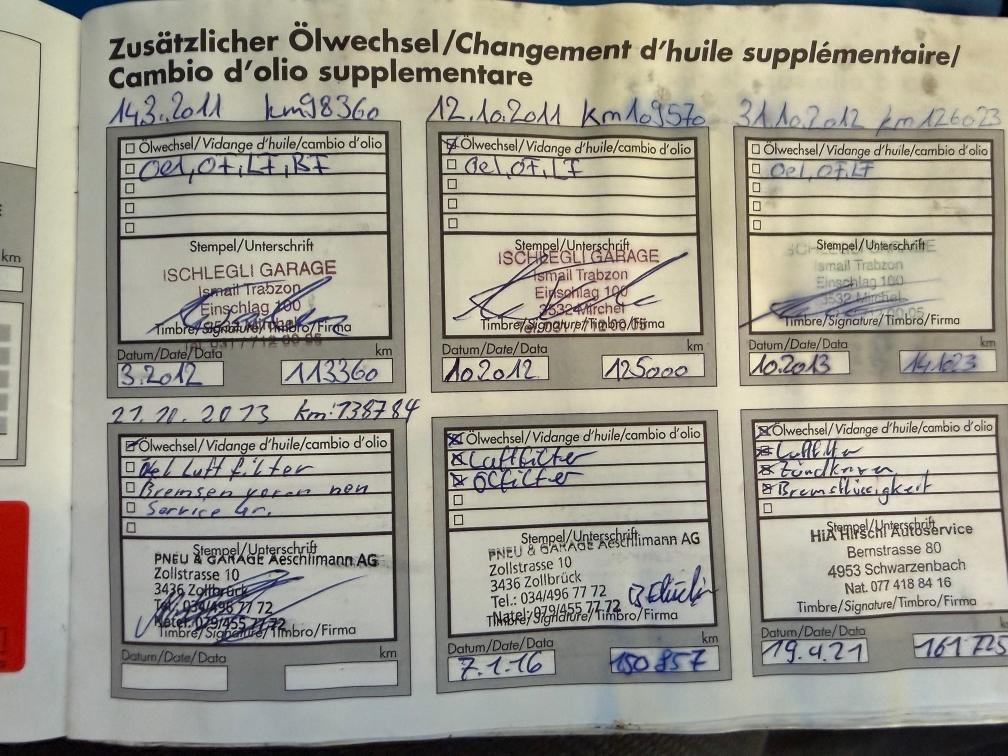 Zusätzlicher Ölwechsel/Changement d'huile supplémentaire/
Cambio d'olio supplementare
14.3.2011 km 98360
Ölwechsel/Vidange d'huile/cambio d'olio
Oel, OF, LF, BF
Stempel/Unterschrift
ISCHLEGLI GARAGE
Ismail Trabzon
Einschlag 100
Timbre/Signature/Timbro/Firma
Datum/Date/Data
km
3.2012
113360
12.10.2011 km 109570
Ölwechsel/Vidange d'huile/cambio d'olio
Oel, OF, LF
Stempel/Unterschrift
ISCHLEGLI GARAGE
Ismail Trabzon
Einschlag 100
3532 Mirchel
Timbre/Signature/Timbro/Firma
Datum/Date/Data
km
10.2012
125000
31.10.2012 km 126023
Ölwechsel/Vidange d'huile/cambio d'olio
Oel, OF, LF
Stempel/Unterschrift
Ismail Trabzon
Einschlag 100
3532 Mirchel
Timbre/Signature/Timbro/Firma
Datum/Date/Data
km
10.2013
141023
21.10.2013 km: 138784
Ölwechsel/Vidange d'huile/cambio d'olio
Oel Luftfilter
Bremsen voran neu
Service gr.
Stempel/Unterschrift
PNEU & GARAGE Aeschlimann AG
Zollstrasse 10
3436 Zollbrück
Tel.: 034/496 77 72
Natel: 079/455 77 72
Timbre/Signature/Timbro/Firma
Datum/Date/Data
km
Ölwechsel/Vidange d'huile/cambio d'olio
Luftfilter
Ölfilter
Stempel/Unterschrift
PNEU & GARAGE Aeschlimann AG
Zollstrasse 10
3436 Zollbrück
Tel.: 034/496 77 72
Natel: 079/455 77 72
Timbre/Signature/Timbro/Firma
Datum/Date/Data
km
7.1.16
150857
Ölwechsel/Vidange d'huile/cambio d'olio
Luftfilter
Zündkerzen
Bremsflüssigkeit
Stempel/Unterschrift
HiA Hirschi Autoservice
Bernstrasse 80
4953 Schwarzenbach
Nat. 077 418 84 16
Timbre/Signature/Timbro/Firma
Datum/Date/Data
km
19.4.21
161725
km